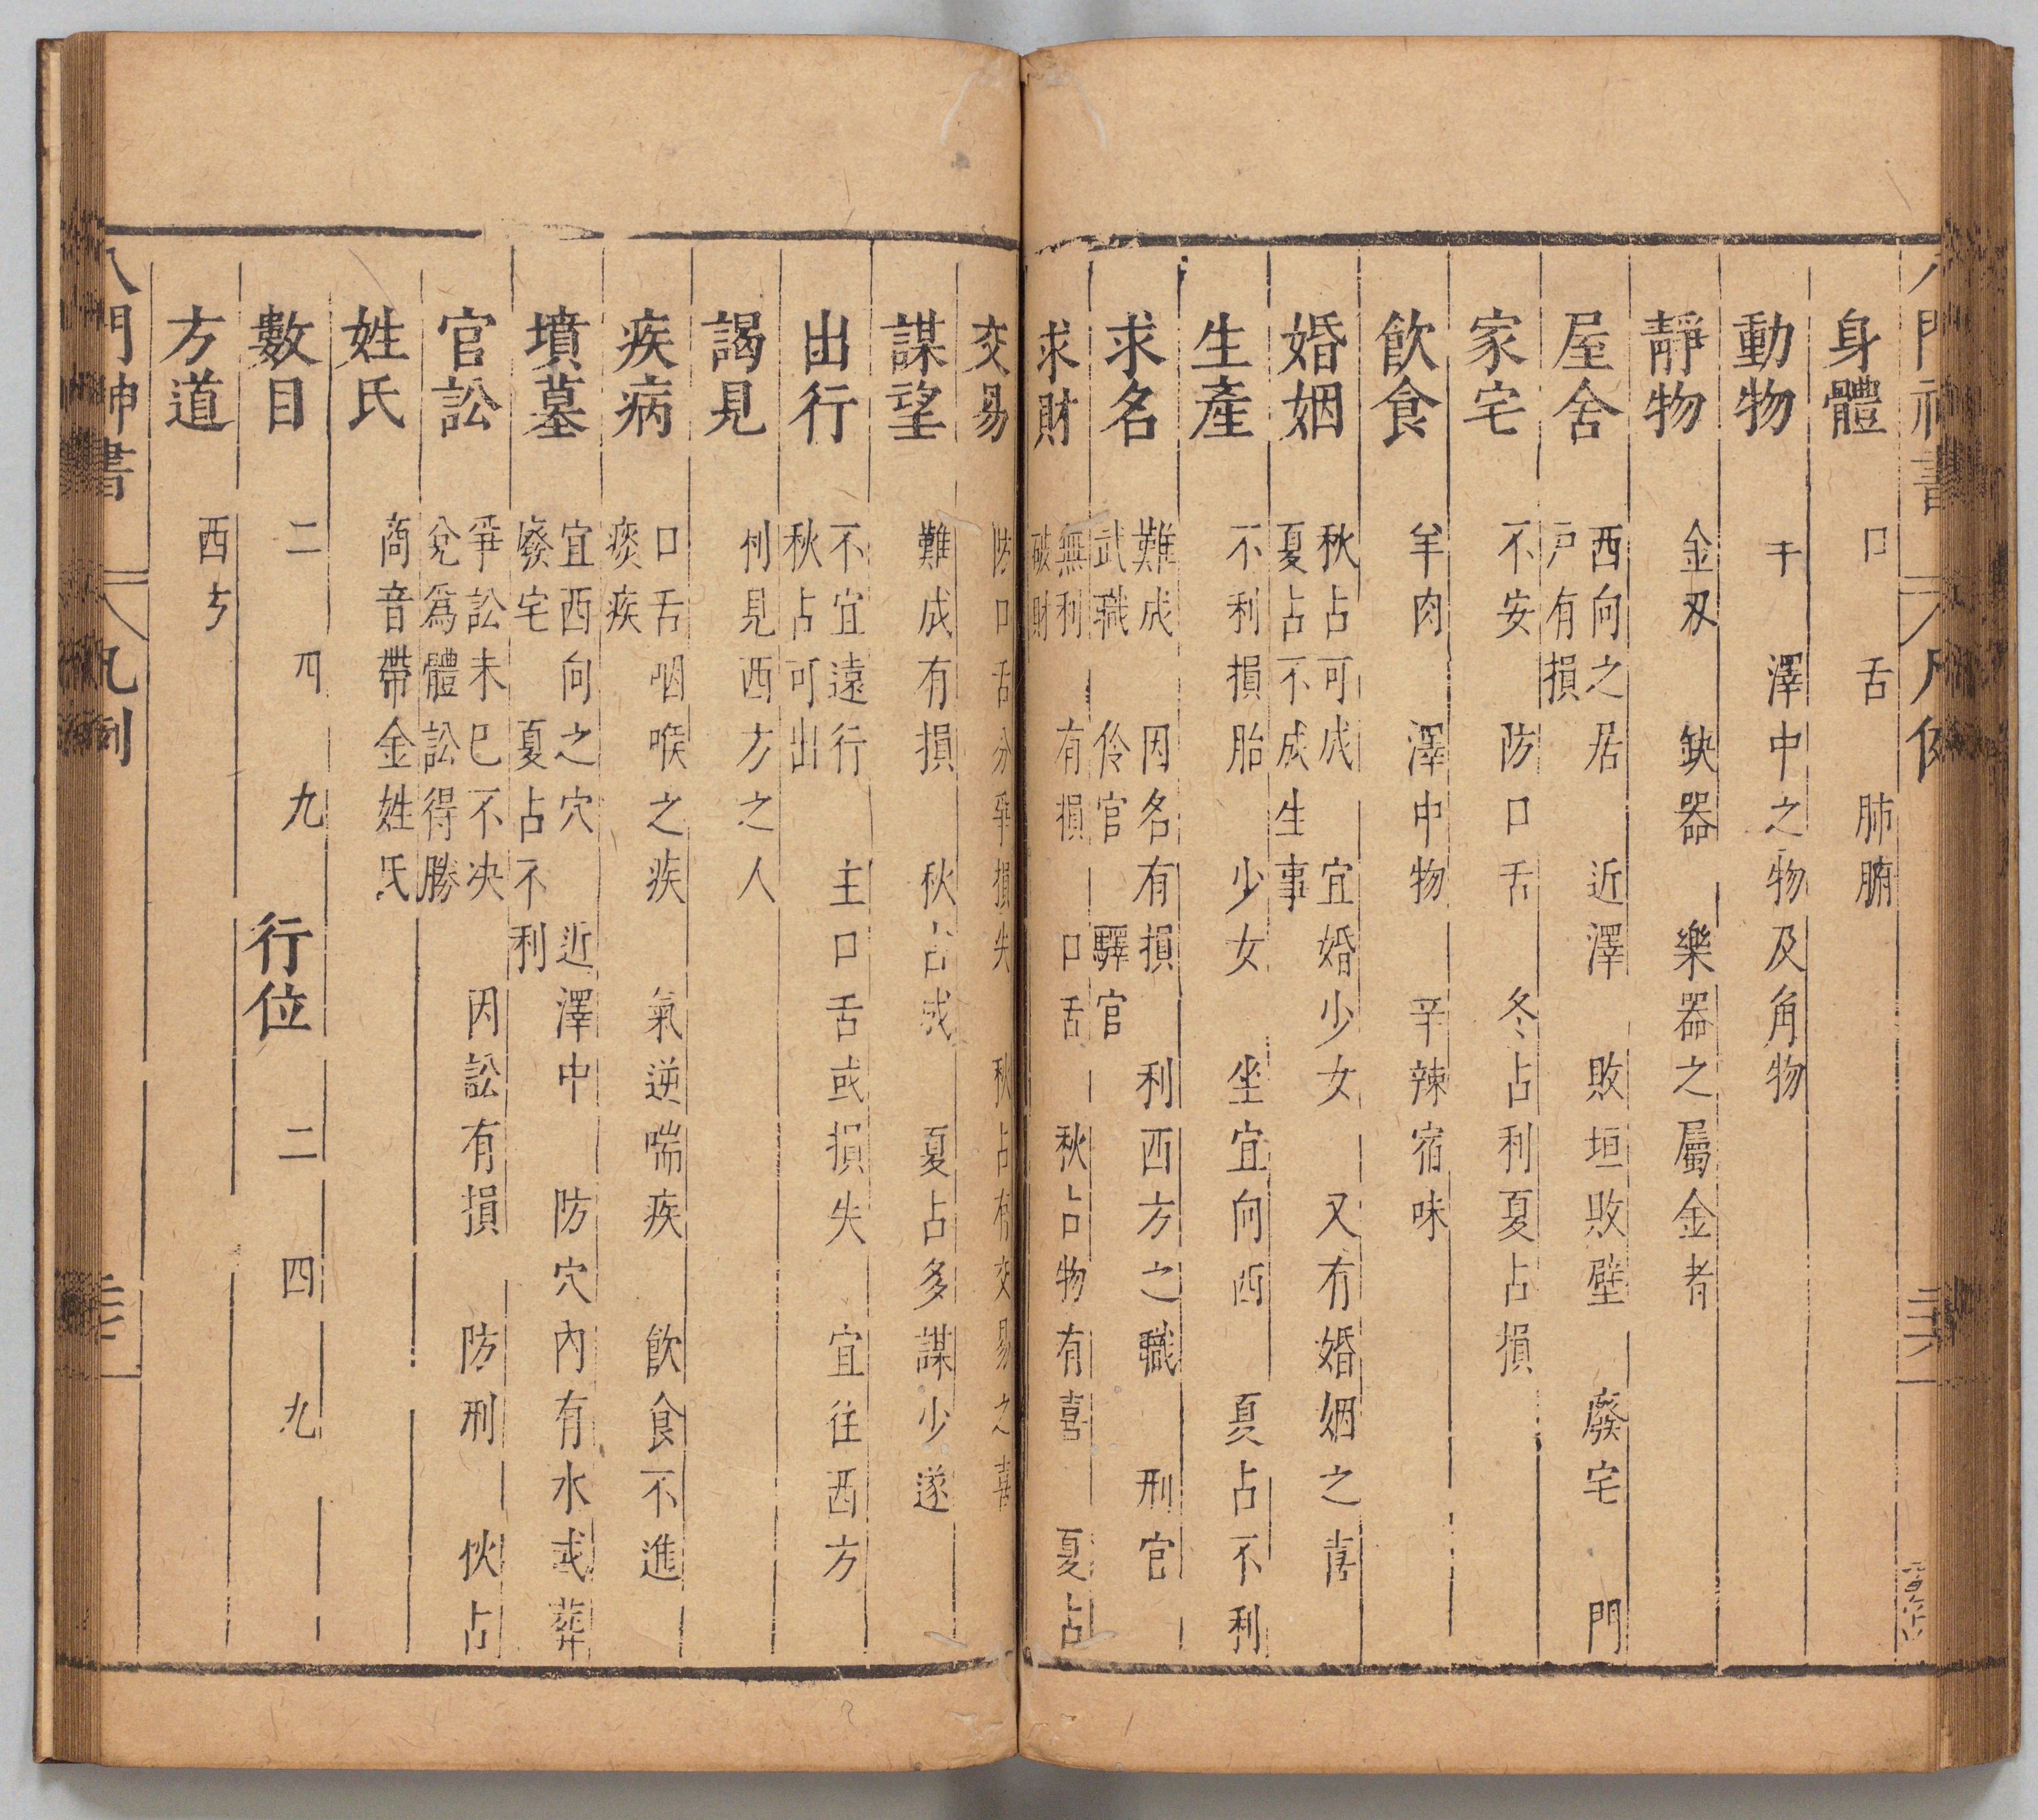 八門神書 凡例 二十六
身體 口 舌 肺腑
動物 羊 澤中之物及角物
靜物 金刃 缺器 樂器之屬金者
屋舍 西向之居 近澤 敗垣敗壁 廢宅 門
戶有損
家宅 不安 防口舌 冬占利夏占損
飲食 羊肉 澤中物 辛辣宿味
婚姻 秋占可成 宜婚少女 又有婚姻之喜
夏占不成生事
生產 不利損胎 少女 坐宜向西 夏占不利
求名 難成 因名有損 利西方之職 刑官
武職 伶官 驛官
求財 無利 有損 口舌 秋占物有喜 夏占
破財
交易 防口舌分爭損失 秋占有交易之喜
謀望 難成有損 秋占或 夏占多謀少遂
出行 不宜遠行 主口舌或損失 宜往西方
秋占可出
謁見 利見西方之人
疾病 口舌咽喉之疾 氣逆喘疾 飲食不進
痰疾
墳墓 宜西向之穴 近澤中 防穴內有水或葬
廢宅 夏占不利
官訟 爭訟未已不决 因訟有損 防刑 伙占
兌為體訟得勝
姓氏 商音帶金姓氏
數目 二 四 九 行位 二 四 九
方道 西方
八門神書 凡例